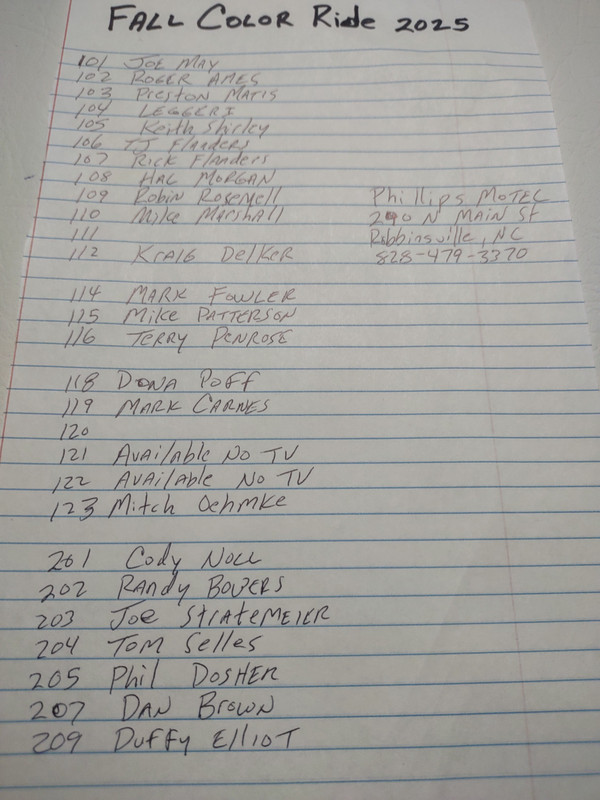 FALL COLOR Ride 2025
101 JOE MAY
102 ROGER AMES
103 PRESTON MATIS
104 LEGGERI
105 Keith Shirley
106 TJ Flanders
107 Rick Flanders
108 HAL MORGAN
109 Robin Rosewell
110 Mike Marshall
111
112 KRAIG DelKER
114 MARK FOWLER
115 Mike PATTERSON
116 TERRY PENROSE
118 DONA POFF
119 MARK CARNES
120
121 Available No TV
122 Available No TV
123 Mitch Oehmke
201 Cody NOLL
202 RANDY BOWERS
203 JOE STRATEMEIER
204 TOM Selles
205 Phil DOSHER
207 DAN BROWN
209 DUFFY ElliOT
Phillips MOTEL
290 N MAIN St
Robbinsville, NC
828-479-3370